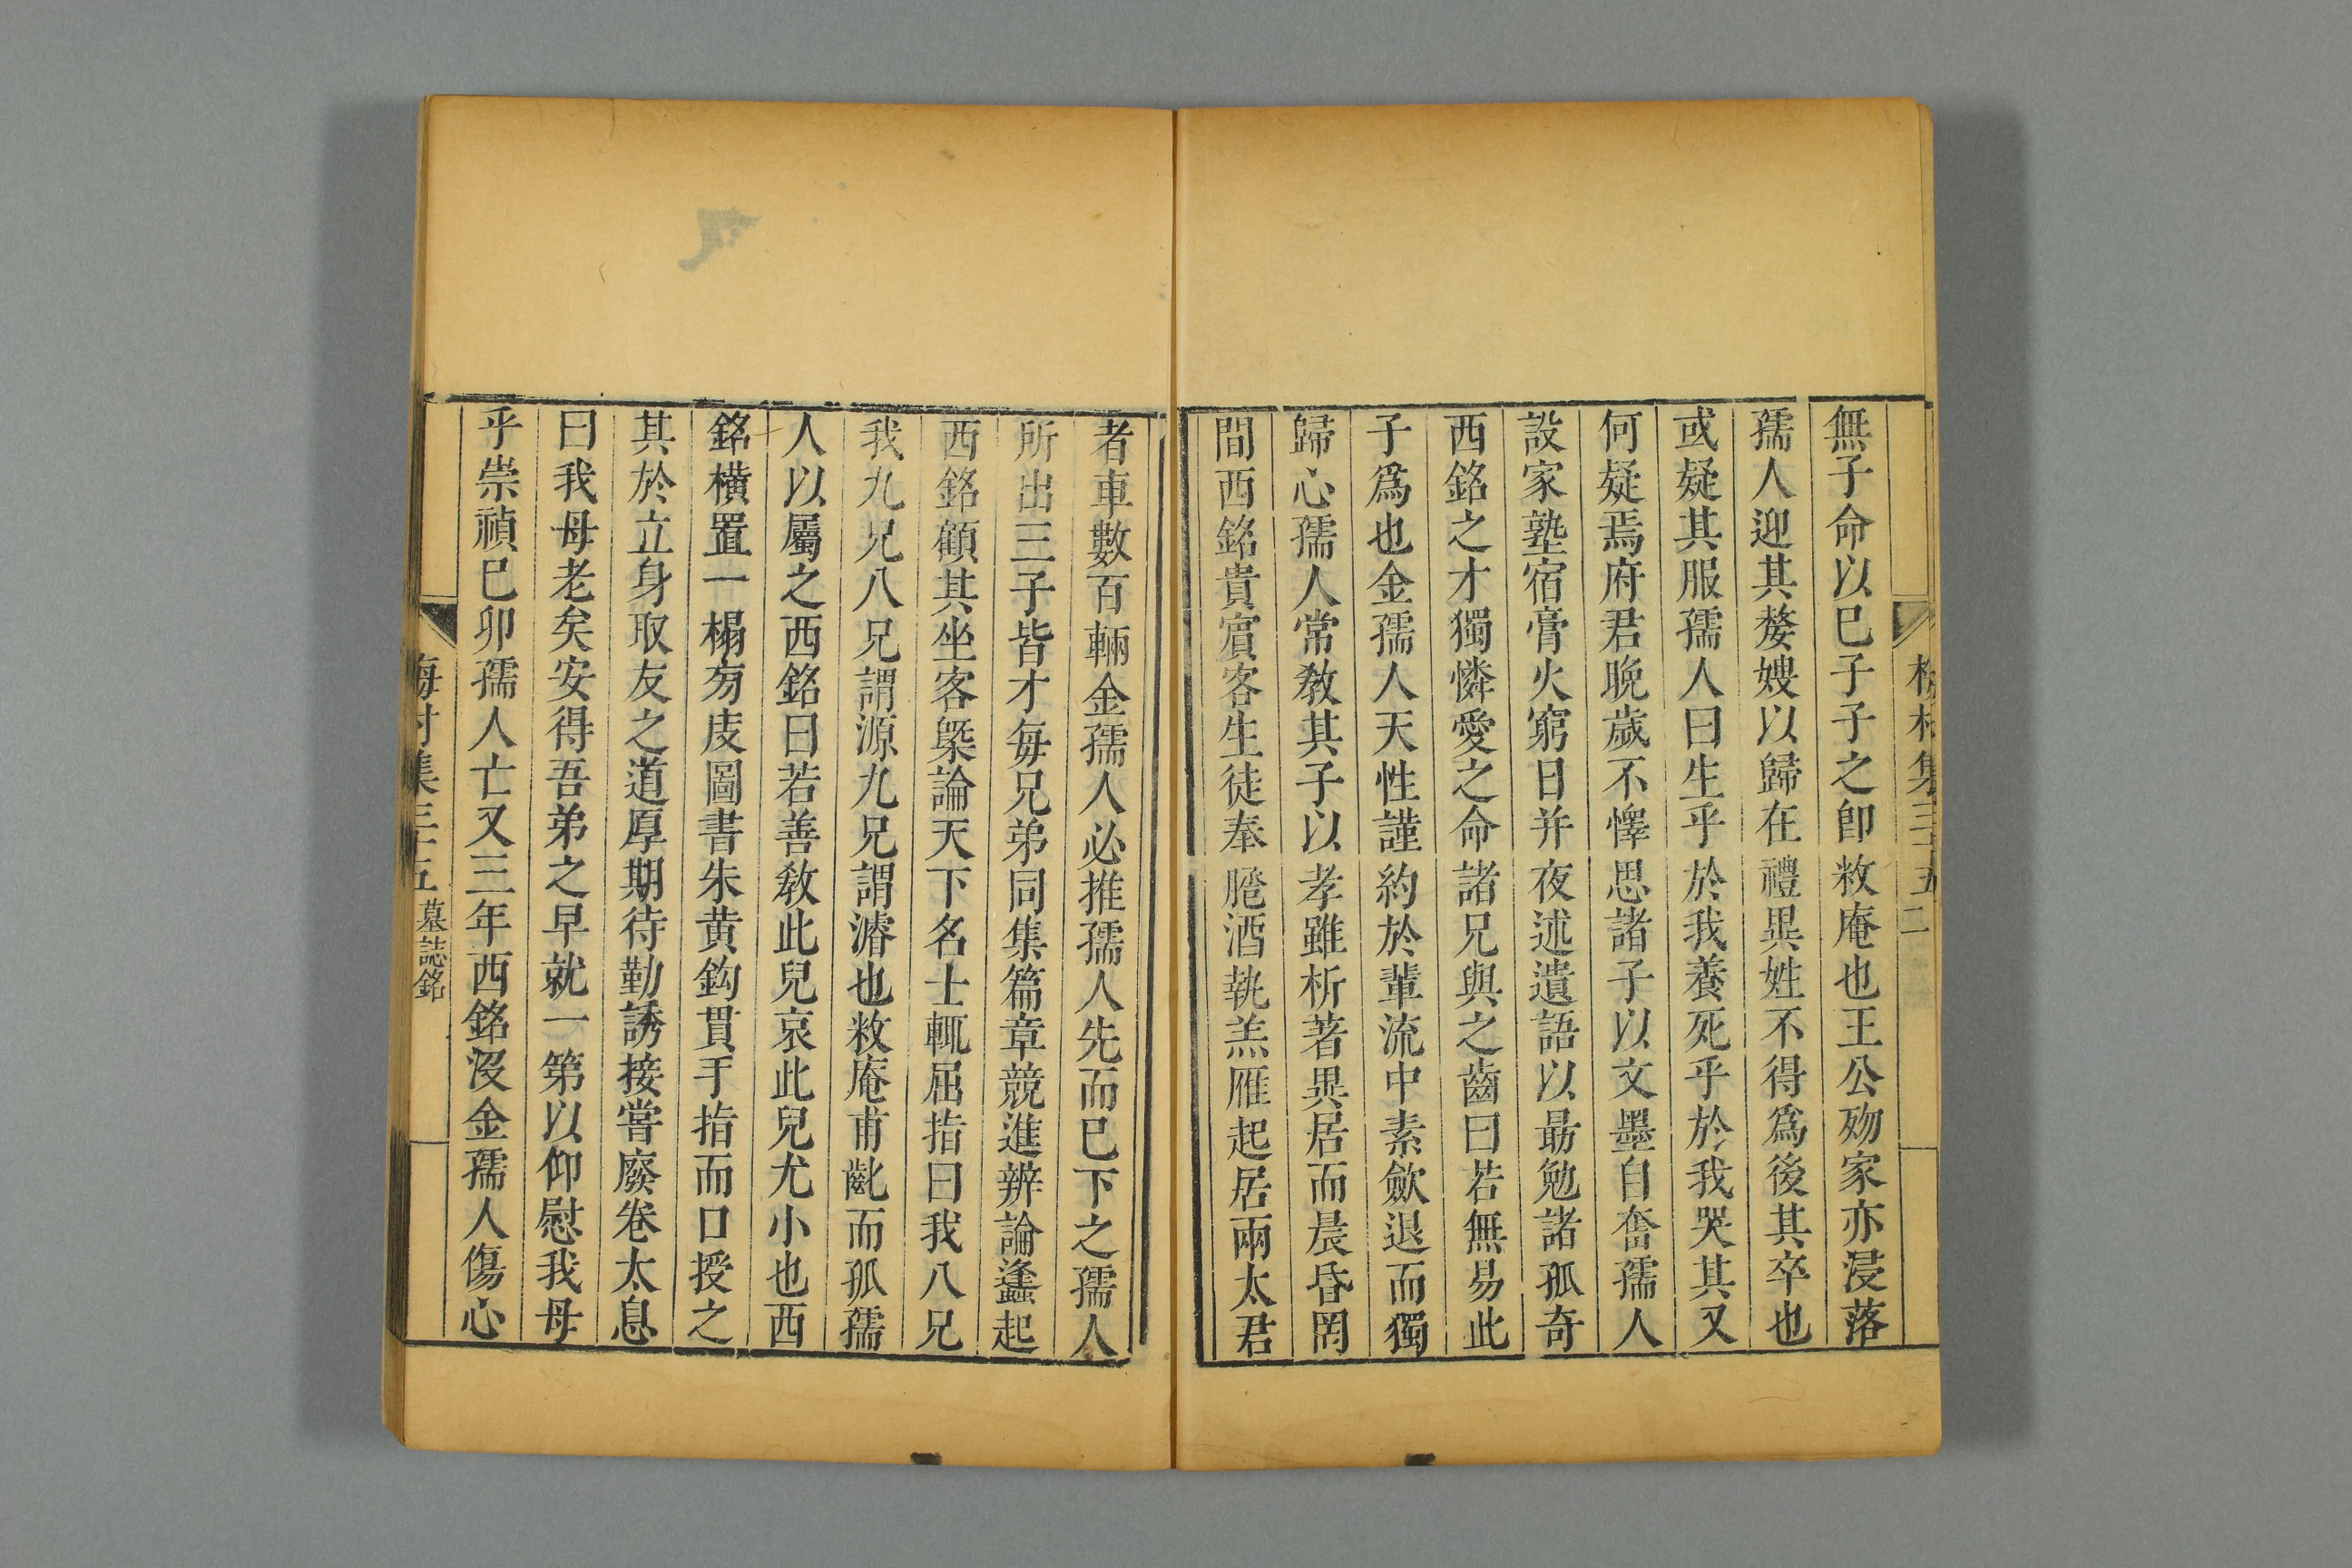 無子命以巳子子之卽敉庵也王公歿家亦浸落
孺人迎其嫠嫂以歸在禮異姓不得爲後其卒也
或疑其服孺人曰生乎於我養死乎於我哭其又
何疑焉府君晚歲不懌思諸子以文墨自奮孺人
設家塾宿膏火窮日并夜述遺語以勗勉諸孤奇
西銘之才獨憐愛之命諸兄與之齒曰若無易此
子爲也金孺人天性謹約於輩流中素歛退而獨
歸心孺人常敎其子以孝雖析著異居而晨昏罔
間西銘貴賔客生徒奉卺酒執羔雁起居兩太君
者車數百輛金孺人必推孺人先而巳下之孺人
所出三子皆才毎兄弟同集篇章競進辨論蠭起
西銘顧其坐客槩論天下名士輒屈指曰我八兄
我九兄八兄謂源九兄謂濬也敉庵甫齔而孤孺
人以屬之西銘曰若善敎此兒哀此兒尤小也西
銘橫置一榻旁庋圖書朱黄鈎貫手指而口授之
其於立身取友之道厚期待勤誘接嘗廢卷太息
曰我母老矣安得吾弟之早就一第以仰慰我母
乎崇禎巳卯孺人亡又三年西銘沒金孺人傷心
梅村集三十五
二
梅村集三十五 墓誌銘